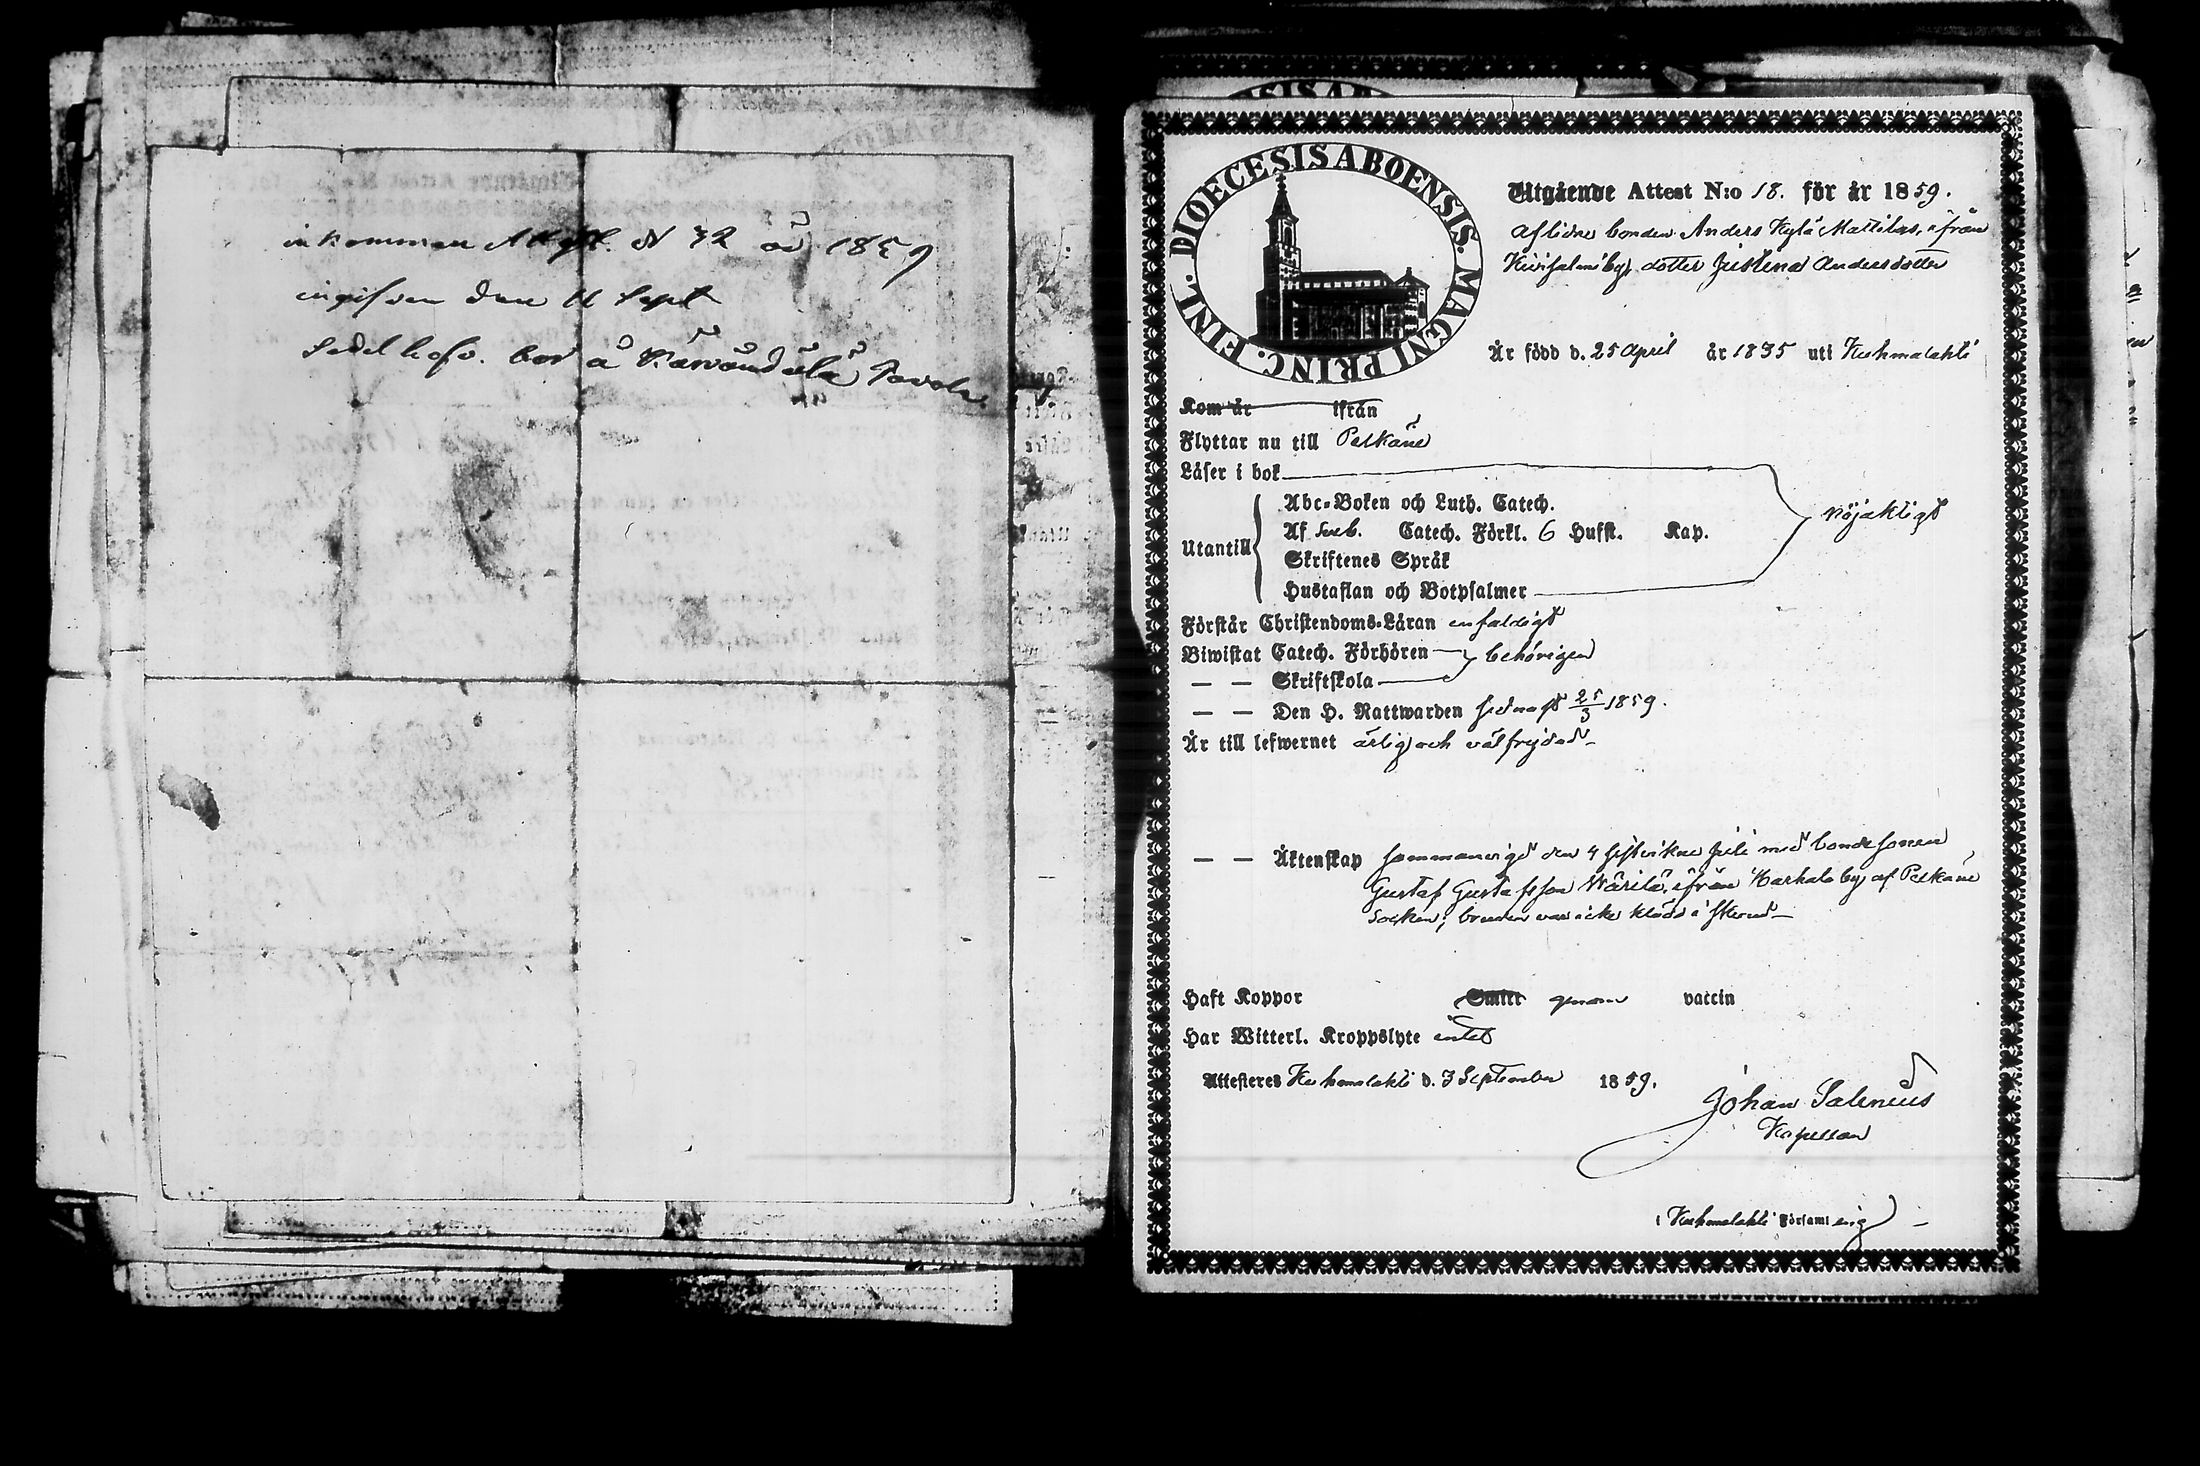 inkommen Attest. N 32 år 1859
ingifven den 11 Sept
bor å
DIOECESIS ABOENSIS. MAGNI PRINC. FINL.
Utgående Attest N:o 18. för år 1859.
Aflidne bonden Anders Kylä Mattilas, ifrån
by, dotter Justina Andersdotter
Är född d. 25 April år 1835 uti Kuhmalahti
Kom år ifrån
Flyttar nu till Pelkäne
Läser i bok
Abc-Boken och Luth. Catech.
Utantill Af Sveb. Catech. Förkl. 6 Hufst. Kap.
nöjaktigt
Skriftenes Språk
Hustaflan och Botpsalmer
Förstår Christendoms-Läran enfaldigt
Biwistat Catech. Förhören behörigen
— — Skriftskola
— — Den H. Nattwarden sednast 25/3 1859.
Är till lefwernet ärlig och välfrejdad
— — Äktenskap sammanvigd den 4 sistvikne Juli med bondesonen
Gustaf Gustafsson Wärilä, ifrån Harhala by af Pelkäne
Socken; bruden var icke klädd i skrud
Haft Koppor Smitt genom vaccin
Har Witterl. Kroppslyte intet
Attesteres Kuhmalahti d. 3 September 1859.
Johan Salenius
Kapellan
i Kuhmalahti Församl ing